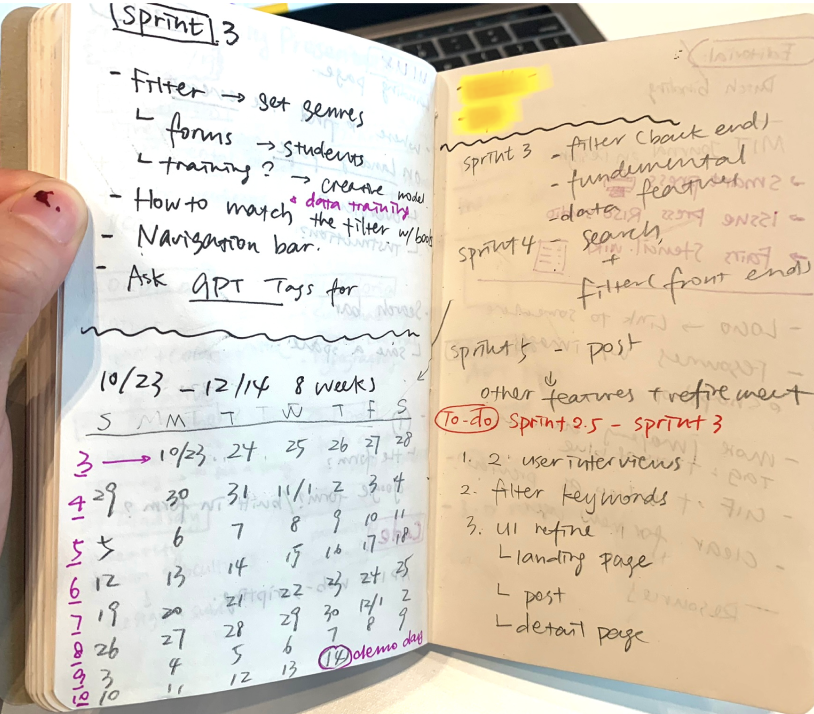 Sprint 3
- Filter → get genres
└ forms → students
└ training? → creative model
* data training
- How to match the filter w/
- Navigation bar.
- Ask GPT Tags for
10/23 – 12/14 8 weeks
S M T W T F S
3 → 10/23 24 25 26 27 28
4 29 30 31 11/1 2 3 4
5 5 6 7 8 9 10 11
6 12 13 14 15 16 17 18
7 19 20 21 22 23 24 25
8 26 27 28 29 30 12/1 2
9 3 4 5 6 7 8 9
10 10 11 12 13 14 demo day
sprint 3 - filter (back end)
- fundemental feature
- data
sprint 4 - search
+
filter (front end)
sprint 5 - post
↓
other features + refirement
To-do Sprint 2.5 – sprint 3
1. 2 user interviews
2. filter keywords
3. UI refine
└ landing page
└ post
└ detail page
Editorial